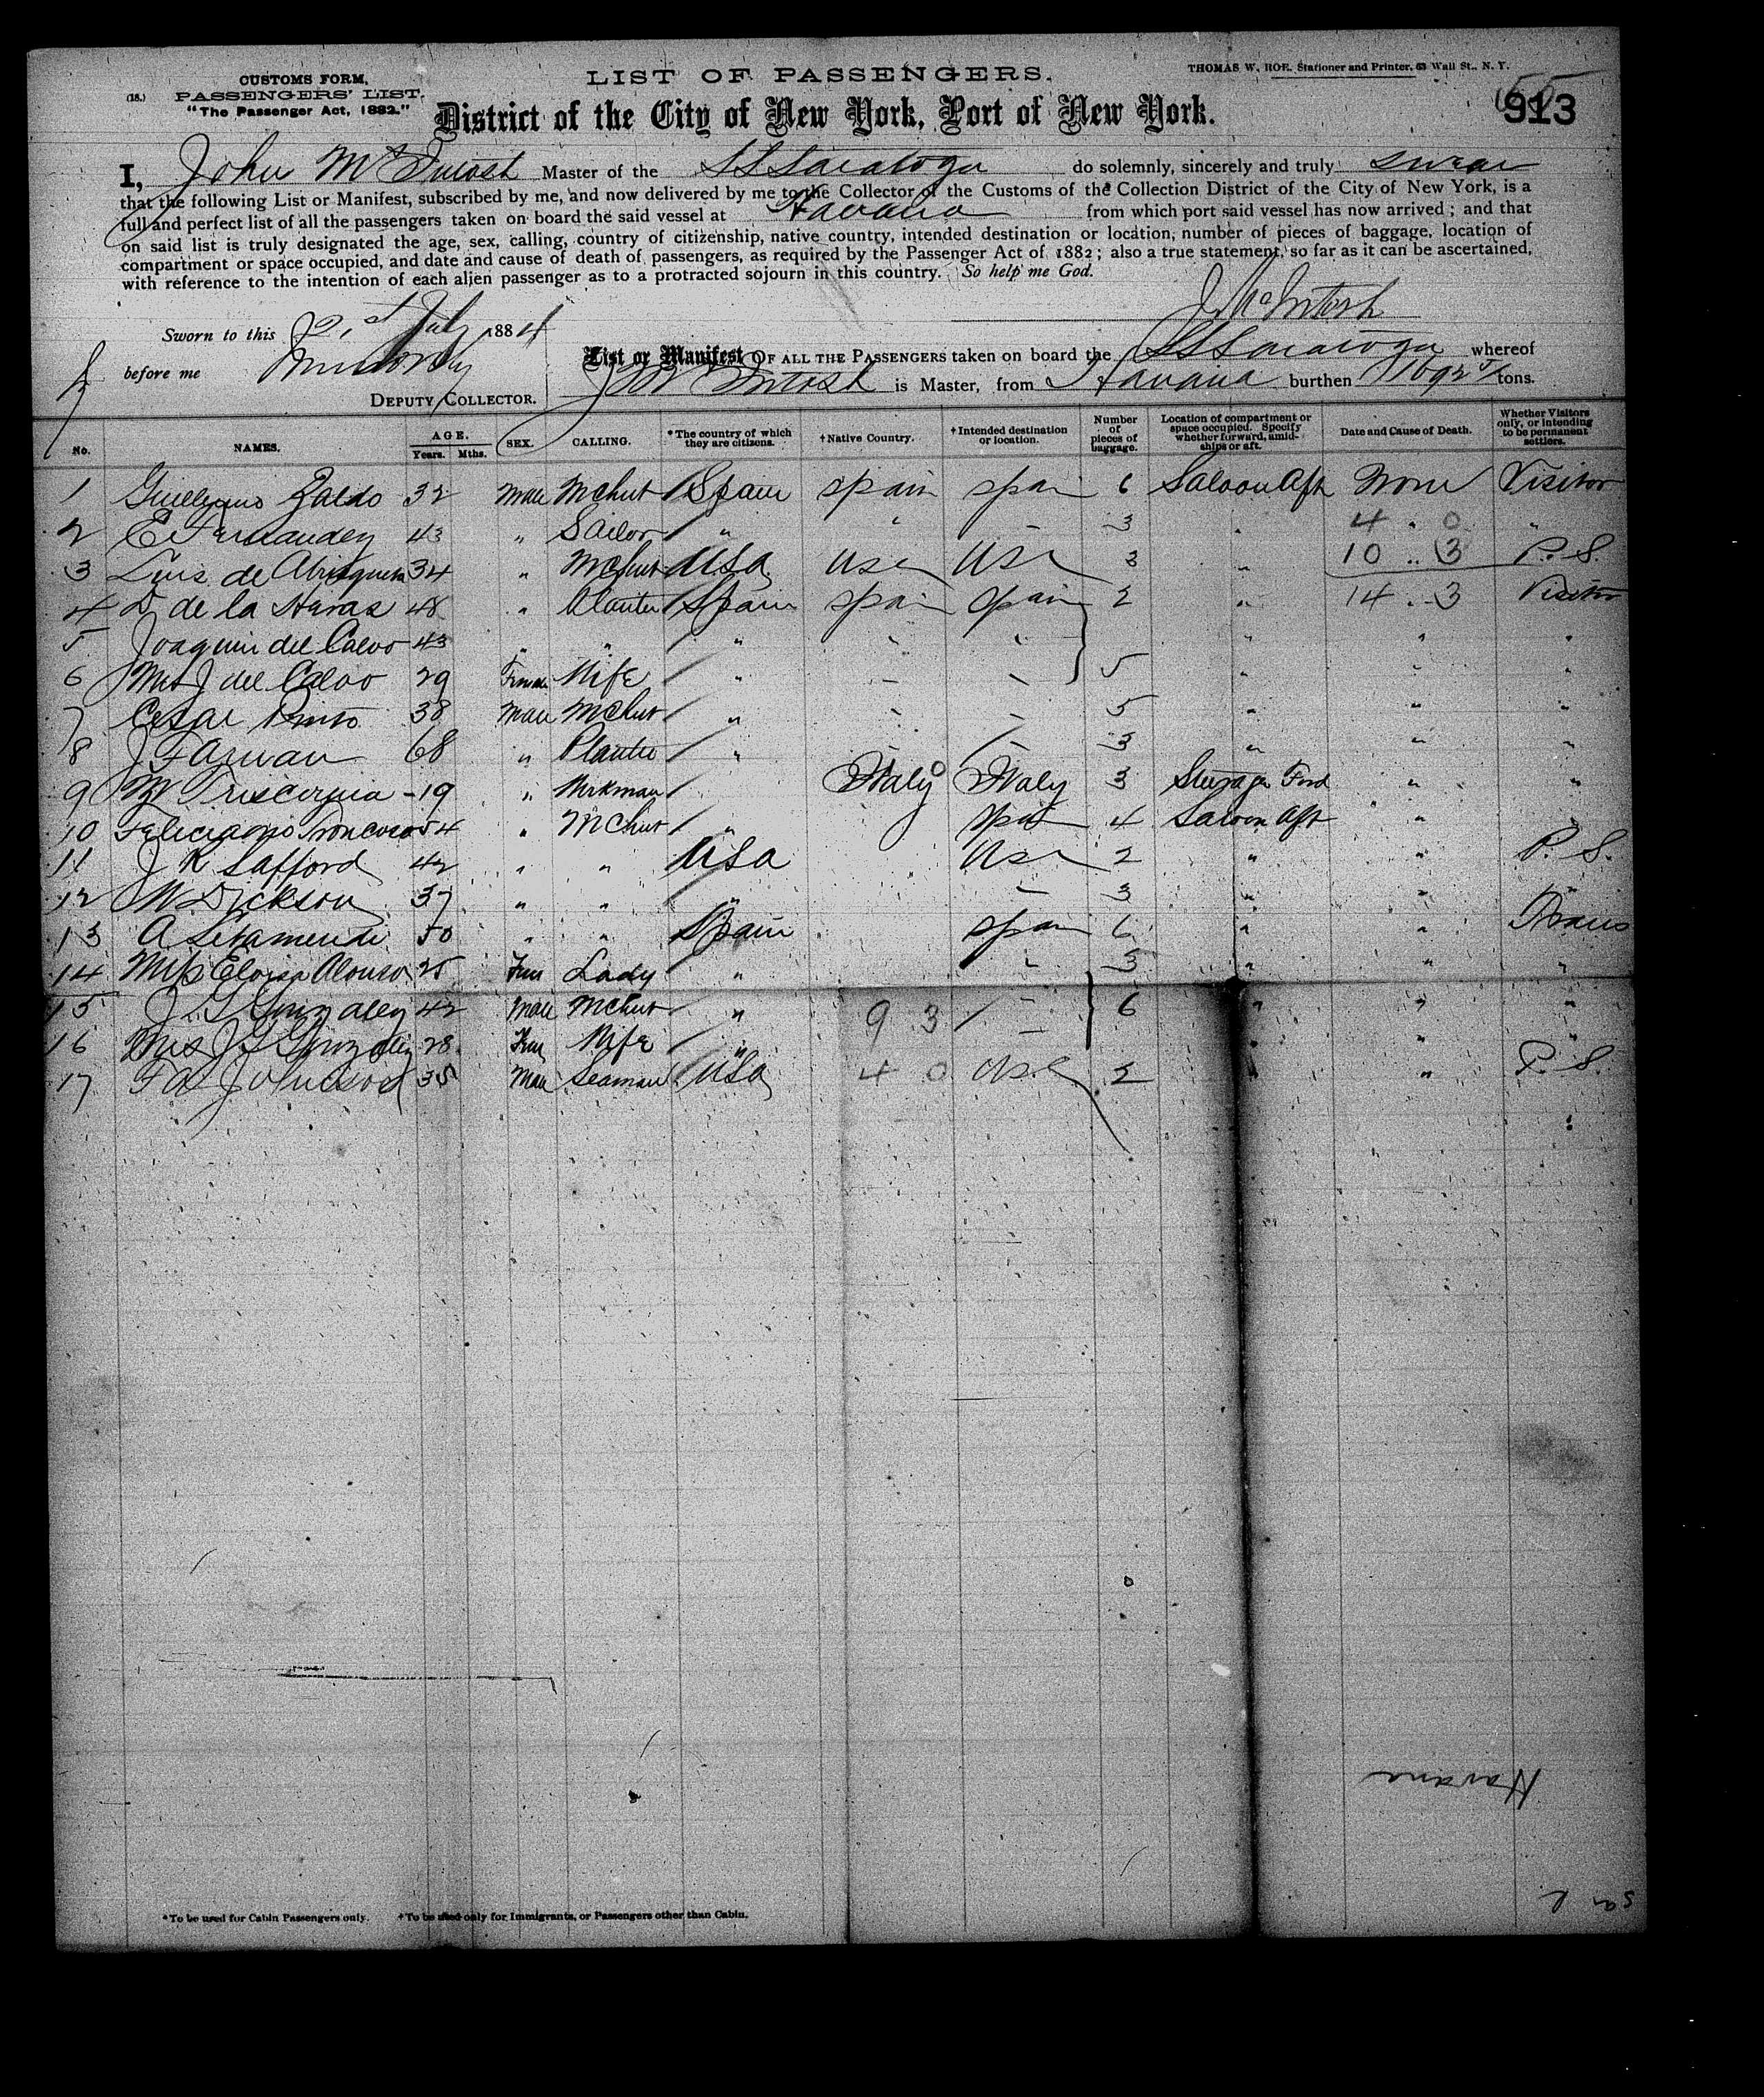 CUSTOMS FORM.
(18.) PASSENGERS' LIST.
"The Passenger Act, 1882."
LIST OF PASSENGERS.
THOMAS W. ROE, Stationer and Printer, 63 Wall St., N. Y.
913
District of the City of New York, Port of New York.
I, John McIntosh Master of the SS Saratoga do solemnly, sincerely and truly swear
that the following List or Manifest, subscribed by me, and now delivered by me to the Collector of the Customs of the Collection District of the City of New York, is a
full and perfect list of all the passengers taken on board the said vessel at Havana from which port said vessel has now arrived; and that
on said list is truly designated the age, sex, calling, country of citizenship, native country, intended destination or location, number of pieces of baggage, location of
compartment or space occupied, and date and cause of death of passengers, as required by the Passenger Act of 1882; also a true statement, so far as it can be ascertained,
with reference to the intention of each alien passenger as to a protracted sojourn in this country. So help me God.
J McIntosh
Sworn to this July 1884
before me
DEPUTY COLLECTOR.
List or Manifest OF ALL THE PASSENGERS taken on board the SS Saratoga whereof
J McIntosh is Master, from Havana burthen 1692 tons.
No. NAMES. AGE. Years. Mths. SEX. CALLING. *The country of which they are citizens. †Native Country. †Intended destination or location. Number of pieces of baggage. Location of compartment or space occupied. Specify whether forward, amidships or aft. Date and Cause of Death. Whether Visitors only, or intending to be permanent settlers.
1 Guillermo Zaldo 32 Male Mchnt Spain Spain Spain 6 Saloon Aft None Visitor
2 E Fernandez 43 " Sailor " " " 3 " 4 " 0 "
3 Luis de 34 " Mchnt USA USA USA 3 " 10 .. 3 P. S.
4 D de la Havas 48 " Planter Spain Spain Spain 2 " 14 .. 3 Visitor
5 Joaquin del Calvo 43 " " " " " " " "
6 Mrs J del Calvo 29 Female Wife " " " 5 " " "
7 Cesar Pinto 38 Male Mchnt " " " 5 " " "
8 J Farman 68 " Planter " " 3 " " "
9 M Triscornia 19 " Workman Italy Italy 3 Steerage Fwd " "
10 Feliciano Troncoso 54 " Mchnt " Spain 4 Saloon Aft " "
11 J R Safford 42 " " USA USA 2 " " P. S.
12 W Dickson 37 " " " " 3 " " "
13 A Letamendi 50 " " Spain Spain 6 " " Trans
14 Miss Eloisa Alonso 25 Fem Lady " " 3 " " "
15 J G Gonzalez 42 Male Mchnt " 9 3 " 6 " " "
16 Mrs J G Gonzalez 28 Fem Wife " " " "
17 F A Johnson 35 Male Seaman USA 4 0 USA 2 " P. S.
Havana
*To be used for Cabin Passengers only. †To be used only for Immigrants, or Passengers other than Cabin.